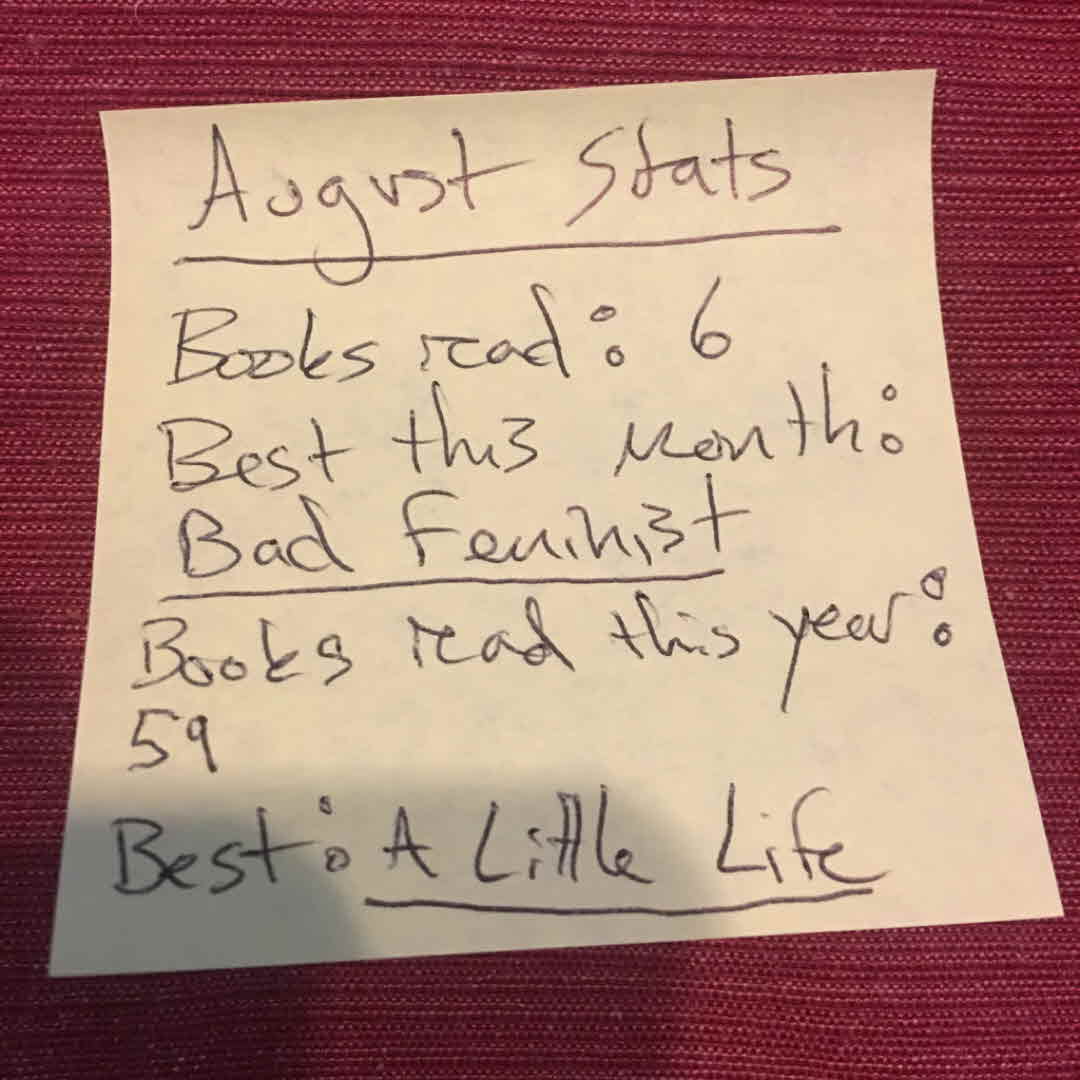 August Stats
Books read: 6
Best this month:
Bad Feminist
Books read this year:
59
Best: A Little Life